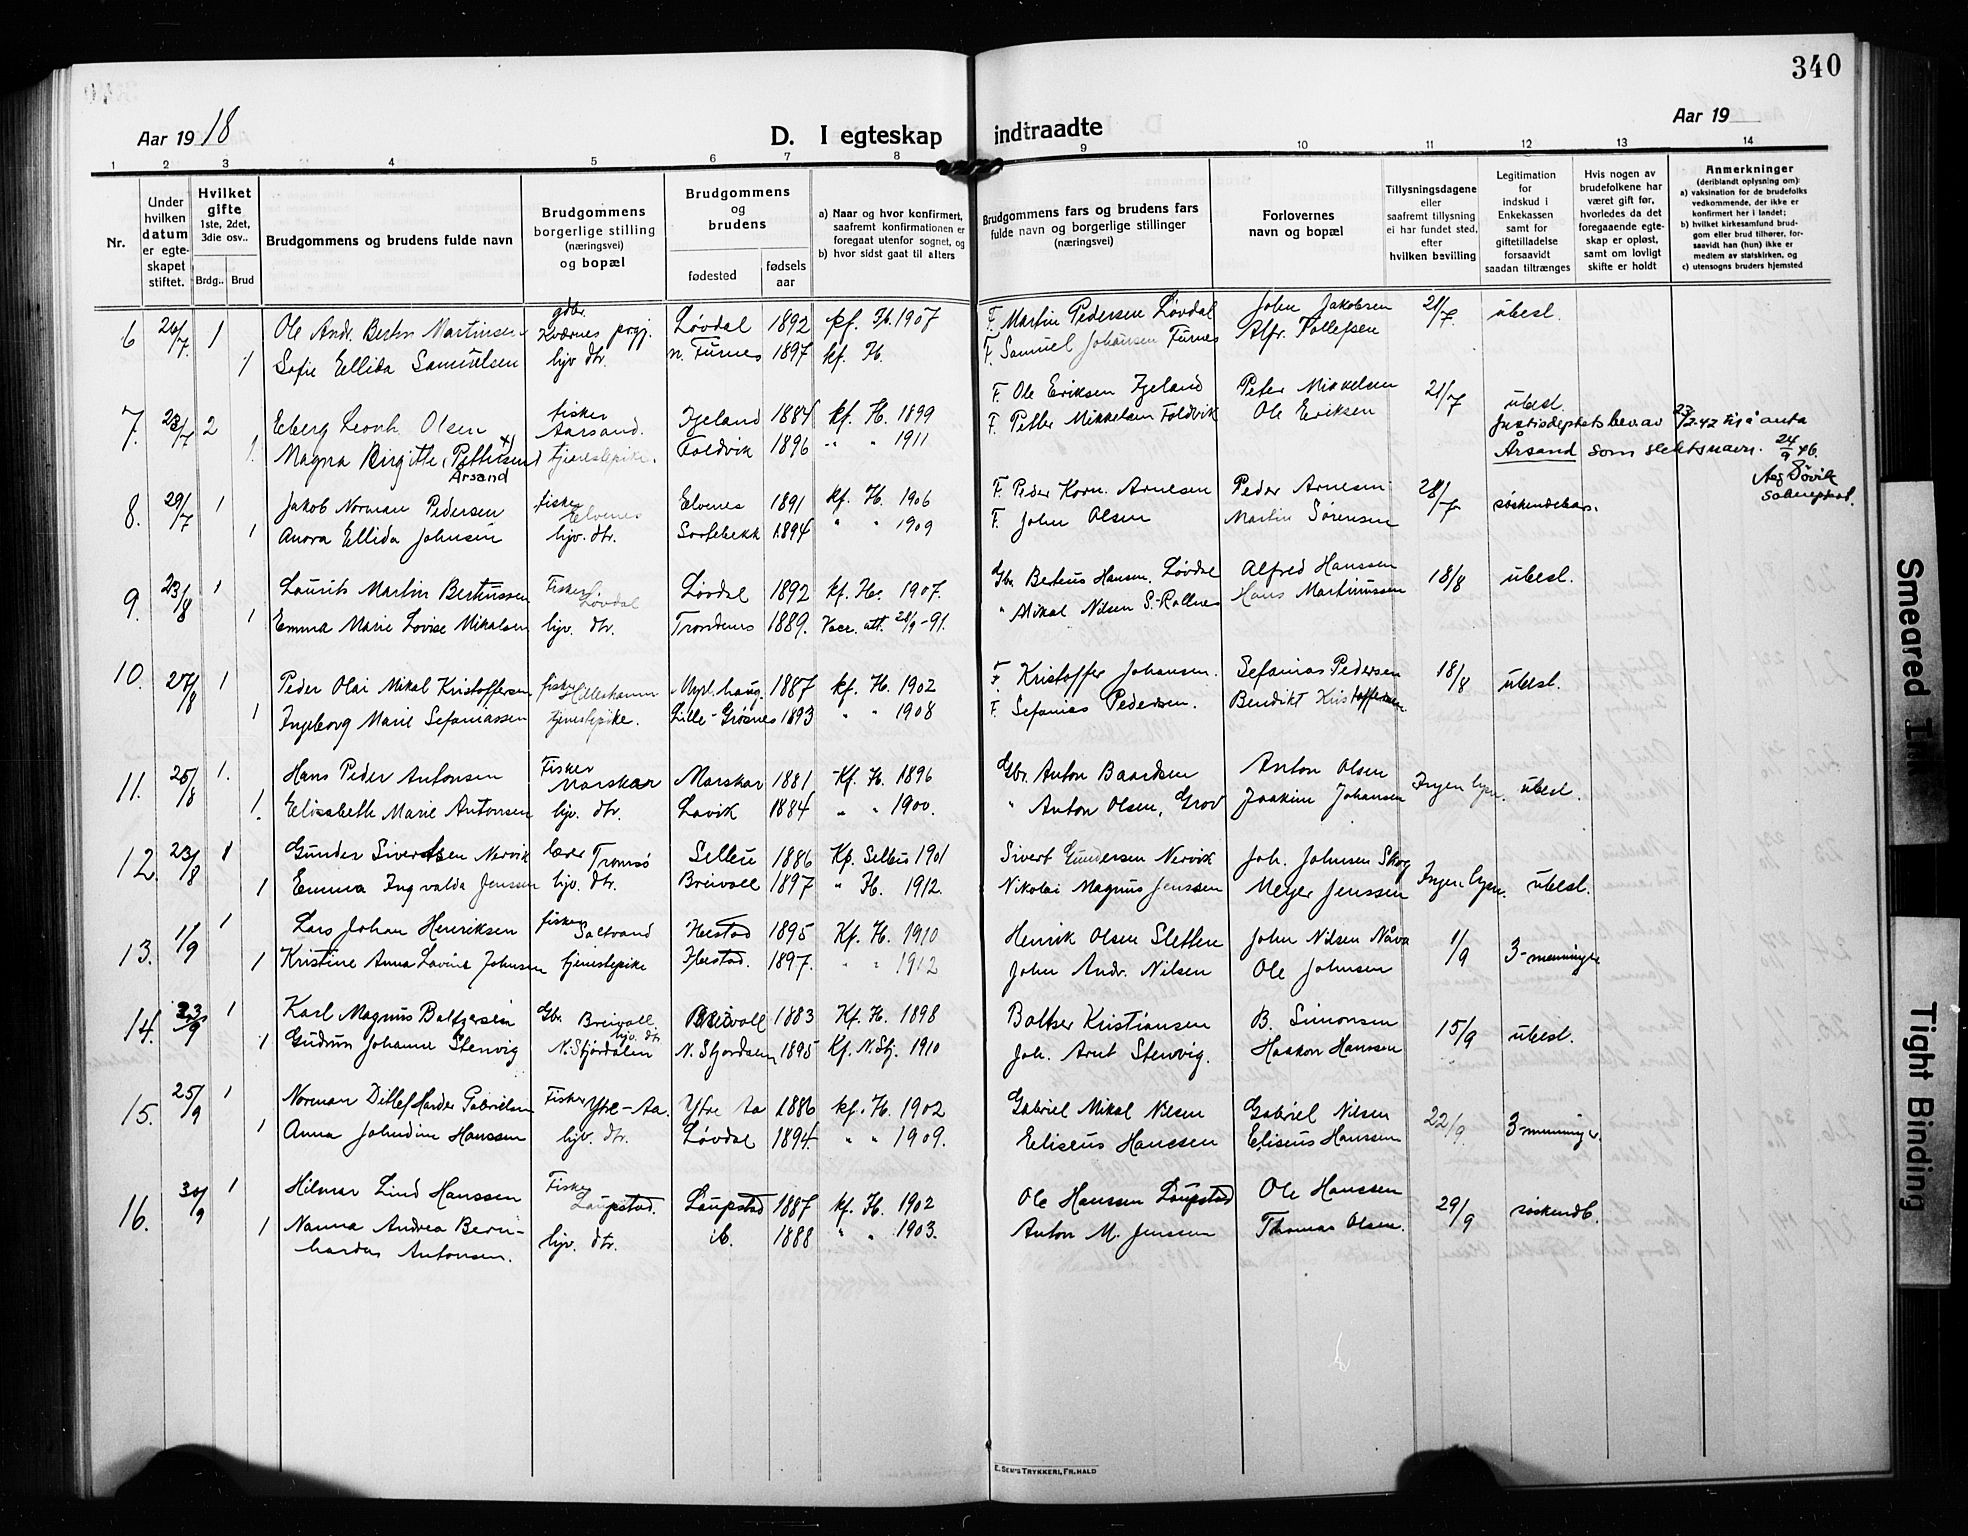 340
Aar 1918
D. I egteskap indtraadte
Aar 19
1 2 3 4 5 6 7 8 9 10 11 12 13 14
Nr.
Under hvilken datum er egteskapet stiftet.
Hvilket gifte 1ste, 2det, 3die osv..
Brdg.. Brud
Brudgommens og brudens fulde navn
Brudgommens borgerlige stilling (næringsvei) og bopæl
Brudgommens og brudens
fødested
fødsels aar
a) Naar og hvor konfirmert, saafremt konfirmationen er foregaat utenfor sognet, og
b) hvor sidst gaat til alters
Brudgommens fars og brudens fars fulde navn og borgerlige stillinger (næringsvei)
Forlovernes navn og bopæl
Tillysningsdagene eller saafremt tillysning ei har fundet sted, efter hvilken bevilling
Legitimation for indskud i Enkekassen samt for giftetilladelse forsaavidt saadan tiltrænges
Hvis nogen av brudefolkene har været gift før, hvorledes da det foregaaende egteskap er opløst, samt om lovligt skifte er holdt
Anmerkninger (deriblandt oplysning om):
a) vaksination for de brudefolks vedkommende, der ikke er konfirmert her i landet;
b) hvilket kirkesamfund brudgom eller brud tilhører, forsaavidt han (hun) ikke er medlem av statskirken, og
c) utensogns bruders hjemsted
6 1 Ole Andr. Bertin Martinsen gbr. Kværnes prgj. Løvdal 1892 kf. Ib. 1907 F. Martin Pedersen Løvdal John Jakobsen 21/7 ubesl.
1 Sofie Ellida Samuelsen hjv. dtr. n. Furnes 1897 kf. H. F. Samuel Johansen Furnes Alfr. Tollefsen
7. 23/7 2 Eberg Leonh. Olsen fisker Aarsand. 1884 kf. H. 1899 F. Ole Eriksen Peter Mikkelsen 21/7 ubesl.
1. Magna Birgitte Pettersen x) tjenestepike. Foldvik 1896 " " 1911 F. Petter Mikkelsen Foldvik Ole Eriksen
Årsand
Justisdeptets bev. av 23/2-42 til å anta
Årsand som slektsnavn. 24/9 46.
sokneprest.
8. 29/7 1 Jakob Norman Pedersen fisker Elvenes Elvenes 1891 kf. H. 1906 F. Peder Korn. Arnesen Peder Arnesen 28/7 søskendebarn.
1 Anora Ellida Johnsen hjv. dtr. Sortebekk 1894 " " 1909 F. John Olsen Martin Sørensen
9. 23/8 1 Laurits Martin Berteussen Fisker Løvdal Løvdal 1892 kf. H. 1907. Gbr. Berteus Hansen, Løvdal Alfred Hanssen 18/8 ubesl.
1 Emma Marie Lovise Mikalsen hjv. dtr. Trondenes 1889. Vacc. att. 28/9-91. " Mikal Nilsen S.-Rollnes Hans Martinussen
10. 27/8 1 Peder Olai Mikal Kristoffersen fisker Hilleshamn 1887 kf. H. 1902 F. Kristoffer Johansen. Sefanias Pedersen 18/8 ubesl.
1 Ingeborg Marie Sefaniassen tjenestepike. Lille-Grøsnes 1893 " " 1908 F. Sefanias Pedersen. Benedikt Kristoffersen
11. 25/8 1. Hans Peder Antonsen Fisker Marskar Marskar 1881 Kf. H. 1896 Gbr. Anton Baardsen Anton Olsen Ingen lysn. ubesl.
1. Elisabeth Marie Antonsen hjv. dtr. Lavik 1884 " " 1900. " Anton Olsen, Grov Joakim Johansen
12. 23/8 1 Gunder Sivertsen Nervik lærer Tromsø Selbu 1886 Kf. Selbu 1901 Sivert Gundersen Nervik Joh. Johnsen Skog Ingen lysn. ubesl.
1 Emma Ingvalda Jenssen hjv. dtr. Breivoll 1897 " H. 1912. Nikolai Magnus Jenssen Meyer Jenssen
13. 1/9 1 Lars Johan Henriksen fisker Saltvand Hestad 1895 Kf. H. 1910 Henrik Olsen Sletten John Nilsen Nåva 1/9 3-menninger
1 Kristine Anna Lovine Johnsen tjenestepike Hestad. 1897. " " 1912 John Andr. Nilsen Ole Johnsen
14. 23/9 1 Karl Magnus Baltzersen Gbr. Breivoll. Breivoll 1883 Kf. H. 1898 Baltser Kristiansen B. Simonsen 15/9 ubesl.
1 Gudrun Johanne Stenvig hjv. dtr N. Stjørdalen N. Stjørdalen 1895 Kf. N. Stj. 1910 Joh. Arnt Stenvig. Haakon Hanssen
15. 25/9 1 Norman Ditlef Harder Gabrielsen Fisker Ytre-Aa. Ytre Aa 1886 kf. H. 1902 Gabriel Mikal Nilsen Gabriel Nilsen 22/9. 3-menninger.
1 Anna Johndine Hanssen hjv. dtr. Løvdal 1894. " " 1909. Eliseus Hanssen Eliseus Hanssen
16. 30/9 1 Hilmar Lind Hanssen Fisker Laupstad. Laupstad 1887 kf. H. 1902 Ole Hanssen Laupstad Ole Hanssen 29/9 søskendb.
1 Nanna Andrea Bern- hjv. dtr. ib. 1888 " " 1903. Anton M. Jenssen Thomas Olsen.
hardas Antonsen.
E. SEM'S TRYKKERI, FR.HALD
Smeared Ink
Tight Binding